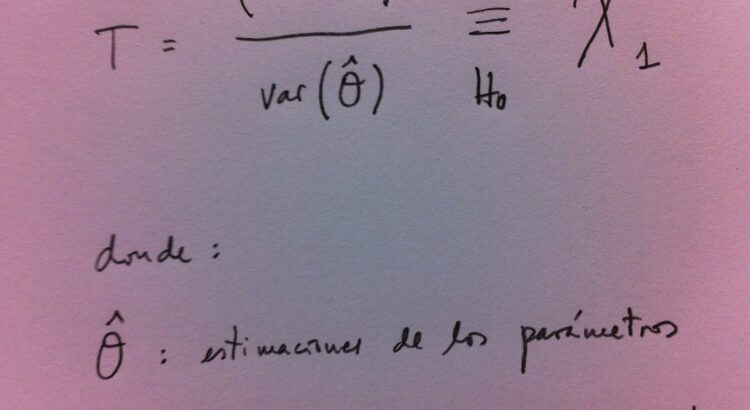 T = / var(θ̂) ≡ H₀ χ₁
donde :
θ̂ : estimaciones de los parámetros